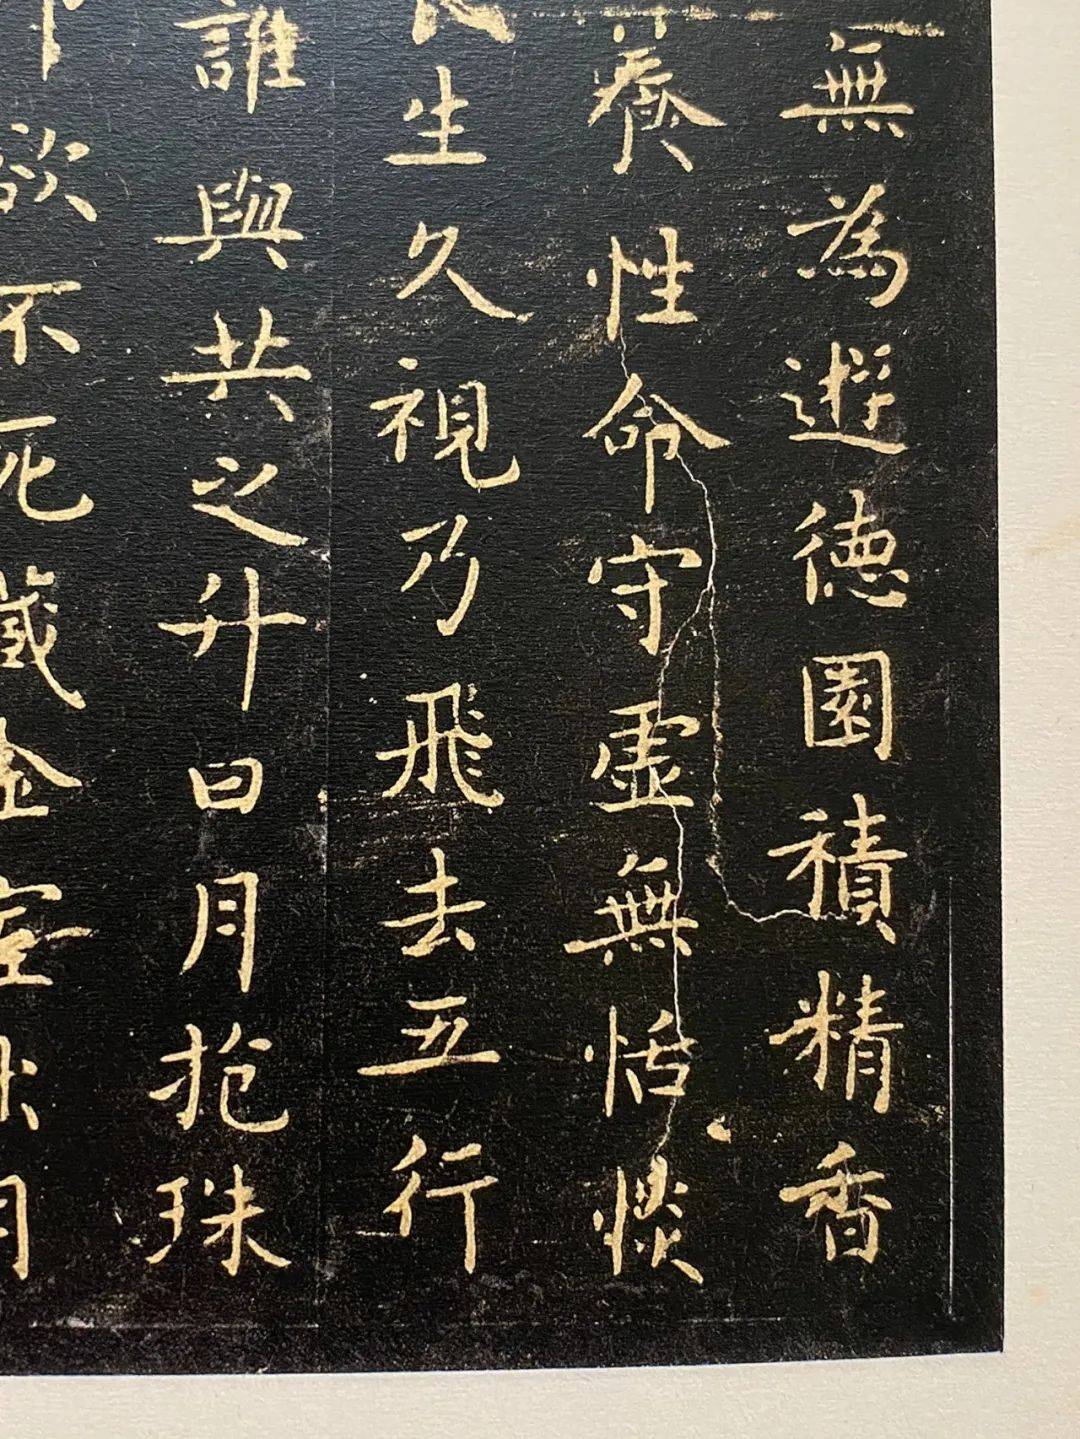 無為遊德園積精香
養性命守虛無恬惔
長生久視乃飛去五行
誰與共之升日月抱珠
欲不死藏金室月